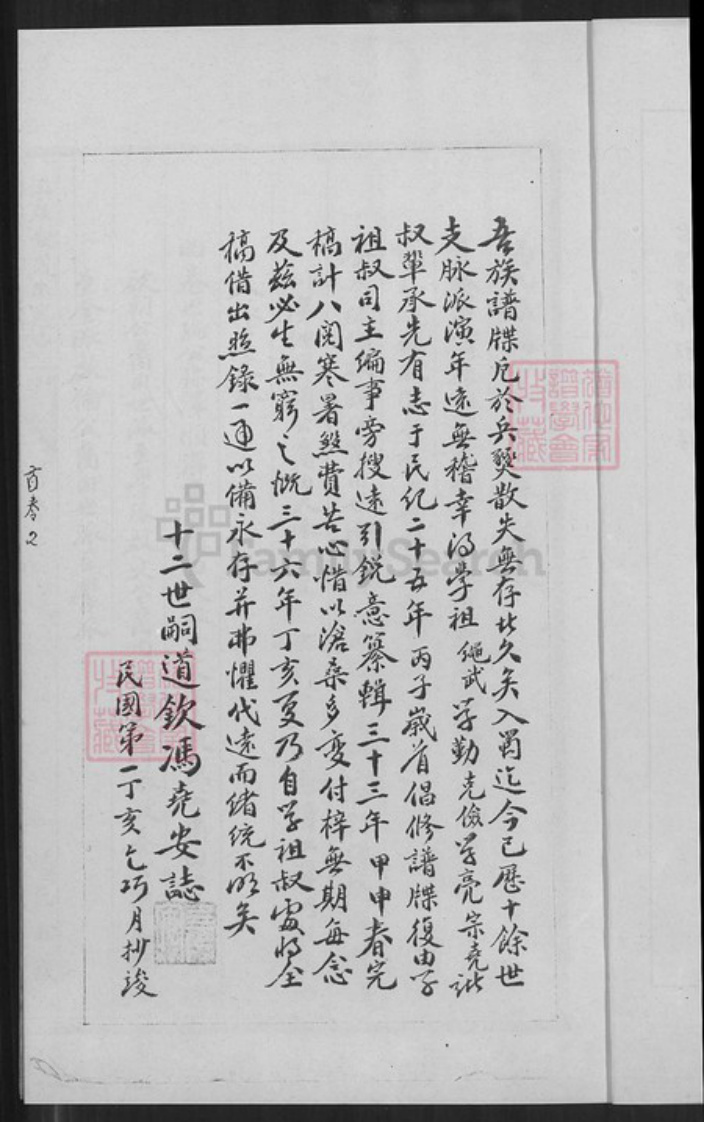 吾族譜牒厄於兵燹散失無存此久矣入蜀迄今已歷十餘世
支脉派演年遠無稽幸得學祖繩武學勤克儉學亮宗堯諸
叔輩承先有志于民紀二十五年丙子歲首倡修譜牒復由學
祖叔司主編事旁搜遠引銳意纂輯三十三年甲申春完
稿計八閱寒暑煞費苦心惜以滄桑多變付梓無期每念
及茲必生無窮之慨三十六年丁亥夏乃自學祖叔處將全
稿借出照錄一通以備永存并弗懼代遠而緒統不明矣
十二世嗣道欽馮堯安誌
民國第一丁亥乞巧月抄竣
首卷2
FamilySearch